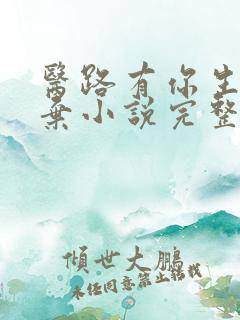 醫路有你生
棄小說完整
傾世大鵬
未經同意禁止轉載